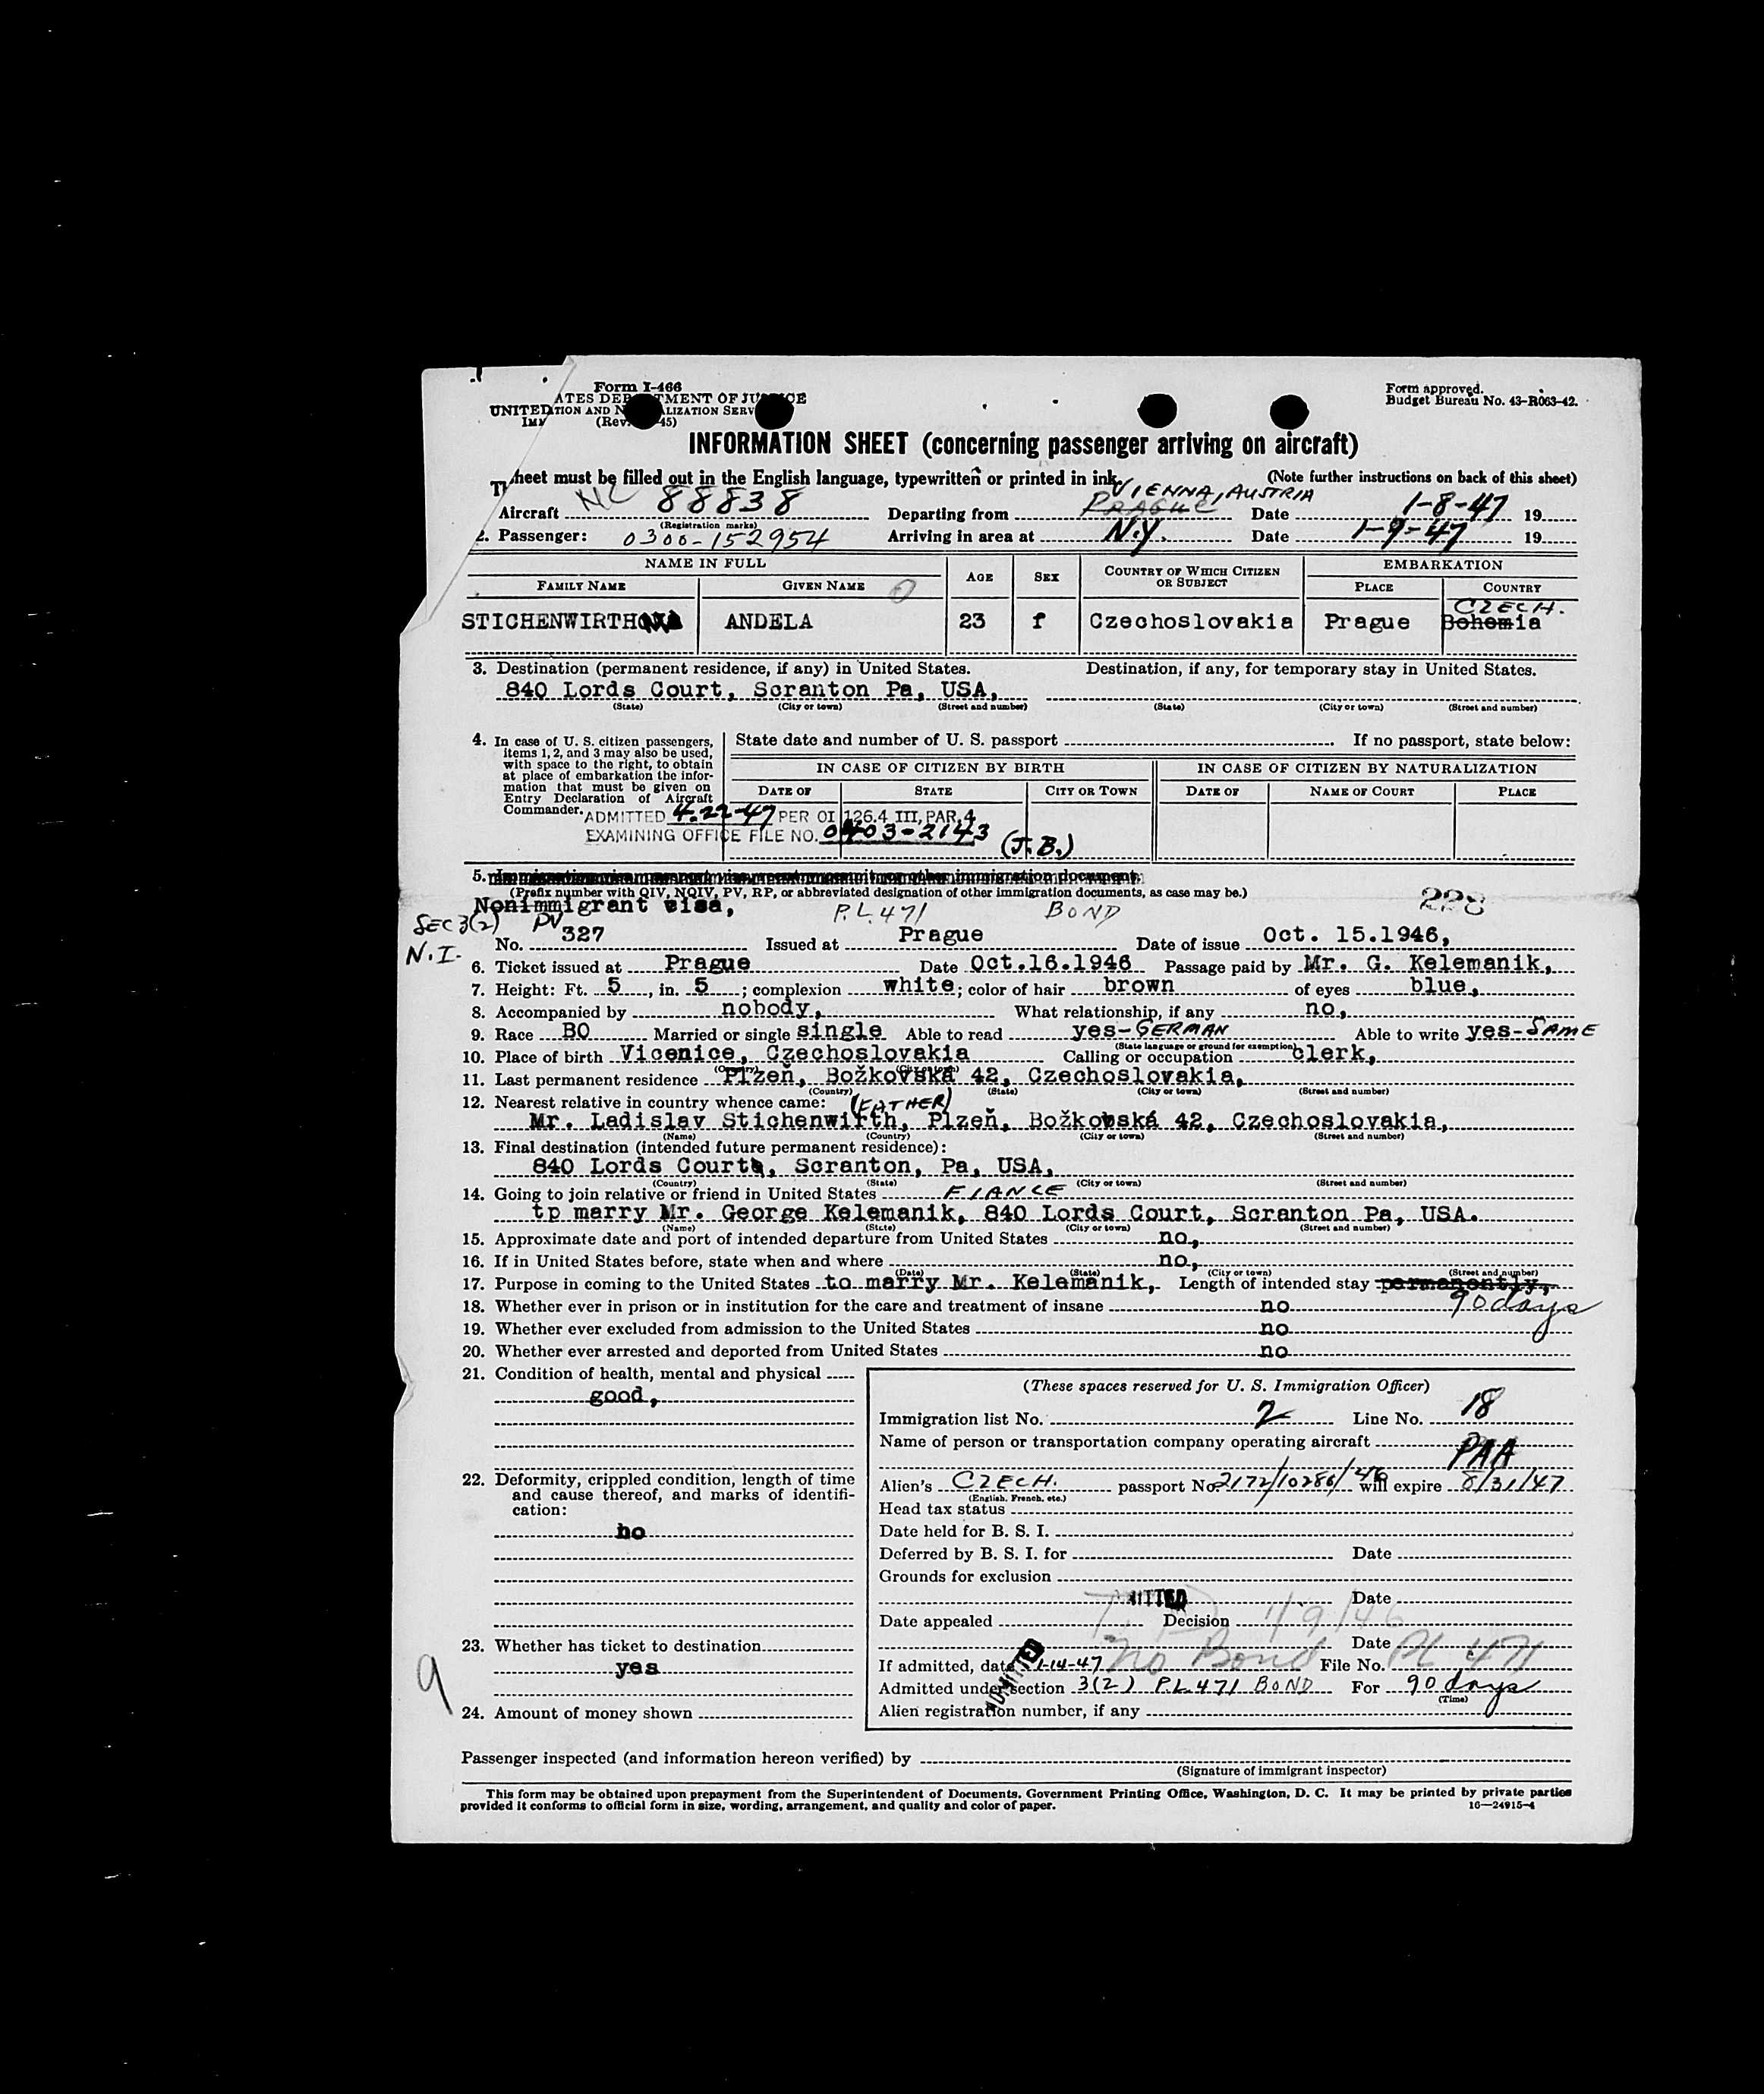 Form I-466
UNITED STATES DEPARTMENT OF JUSTICE
IMMIGRATION AND NATURALIZATION SERV
(Rev. 45)
Form approved.
Budget Bureau No. 43-R063-42.
INFORMATION SHEET (concerning passenger arriving on aircraft)
sheet must be filled out in the English language, typewritten or printed in ink. (Note further instructions on back of this sheet)
VIENNA, AUSTRIA
Aircraft NC 88838 Departing from PRAGUE Date 1-8-47 19
(Registration marks)
2. Passenger: 0300-152954 Arriving in area at N.Y. Date 1-9-47 19
NAME IN FULL AGE SEX COUNTRY OF WHICH CITIZEN OR SUBJECT EMBARKATION
FAMILY NAME GIVEN NAME PLACE COUNTRY
CZECH.
STICHENWIRTHOVA ANDELA 23 f Czechoslovakia Prague Bohemia
3. Destination (permanent residence, if any) in United States. Destination, if any, for temporary stay in United States.
840 Lords Court, Scranton Pa, USA,
(State) (City or town) (Street and number) (State) (City or town) (Street and number)
4. In case of U. S. citizen passengers, items 1, 2, and 3 may also be used, with space to the right, to obtain at place of embarkation the information that must be given on Entry Declaration of Aircraft Commander.
State date and number of U. S. passport If no passport, state below:
IN CASE OF CITIZEN BY BIRTH IN CASE OF CITIZEN BY NATURALIZATION
DATE OF STATE CITY OR TOWN DATE OF NAME OF COURT PLACE
ADMITTED 4-22-47 PER OI 126.4 III, PAR. 4
EXAMINING OFFICE FILE NO. 0403-2143
(J.B.)
5. Immigration visa, reentry permit, or other immigration document,
(Prefix number with QIV, NQIV, PV, RP, or abbreviated designation of other immigration documents, as case may be.)
228
Nonimmigrant visa,
SEC 3(2) PV P.L. 471 BOND
N.I.
No. 327 Issued at Prague Date of issue Oct. 15.1946,
6. Ticket issued at Prague Date Oct.16.1946 Passage paid by Mr. G. Kelemanik,
7. Height: Ft. 5, in. 5; complexion white; color of hair brown of eyes blue,
8. Accompanied by nobody, What relationship, if any no,
9. Race BO Married or single single Able to read yes-GERMAN Able to write yes-SAME
(State language or ground for exemption)
10. Place of birth Vicenice, Czechoslovakia Calling or occupation clerk,
(Country) (City or town)
11. Last permanent residence Plzeň, Božkovská 42, Czechoslovakia,
(Country) (State) (City or town) (Street and number)
12. Nearest relative in country whence came: (FATHER)
Mr. Ladislav Stichenwirth, Plzeň, Božkovská 42, Czechoslovakia,
(Name) (Country) (City or town) (Street and number)
13. Final destination (intended future permanent residence):
840 Lords Court, Scranton, Pa, USA,
(Country) (State) (City or town) (Street and number)
14. Going to join relative or friend in United States FIANCE
tp marry Mr. George Kelemanik, 840 Lords Court, Scranton Pa, USA.
(Name) (State) (City or town) (Street and number)
15. Approximate date and port of intended departure from United States no,
16. If in United States before, state when and where no,
(Date) (State) (City or town) (Street and number)
17. Purpose in coming to the United States to marry Mr. Kelemanik, Length of intended stay permanently,
90 days
18. Whether ever in prison or in institution for the care and treatment of insane no
19. Whether ever excluded from admission to the United States no
20. Whether ever arrested and deported from United States no
21. Condition of health, mental and physical
good,
22. Deformity, crippled condition, length of time and cause thereof, and marks of identification:
no
23. Whether has ticket to destination
yes
9
24. Amount of money shown
(These spaces reserved for U. S. Immigration Officer)
Immigration list No. 2 Line No. 18
Name of person or transportation company operating aircraft
PAA
Alien's CZECH. passport No. 2172/10286/46 will expire 8/31/47
(English, French, etc.)
Head tax status
Date held for B. S. I.
Deferred by B. S. I. for Date
Grounds for exclusion
Date
Date appealed Decision 1/9/46
Date
If admitted, date 1-14-47 No Bond File No. PL 471
ADMITTED
Admitted under section 3(2) P.L. 471 BOND For 90 days
(Time)
Alien registration number, if any
Passenger inspected (and information hereon verified) by
(Signature of immigrant inspector)
This form may be obtained upon prepayment from the Superintendent of Documents, Government Printing Office, Washington, D. C. It may be printed by private parties
provided it conforms to official form in size, wording, arrangement, and quality and color of paper. 16—24915-4